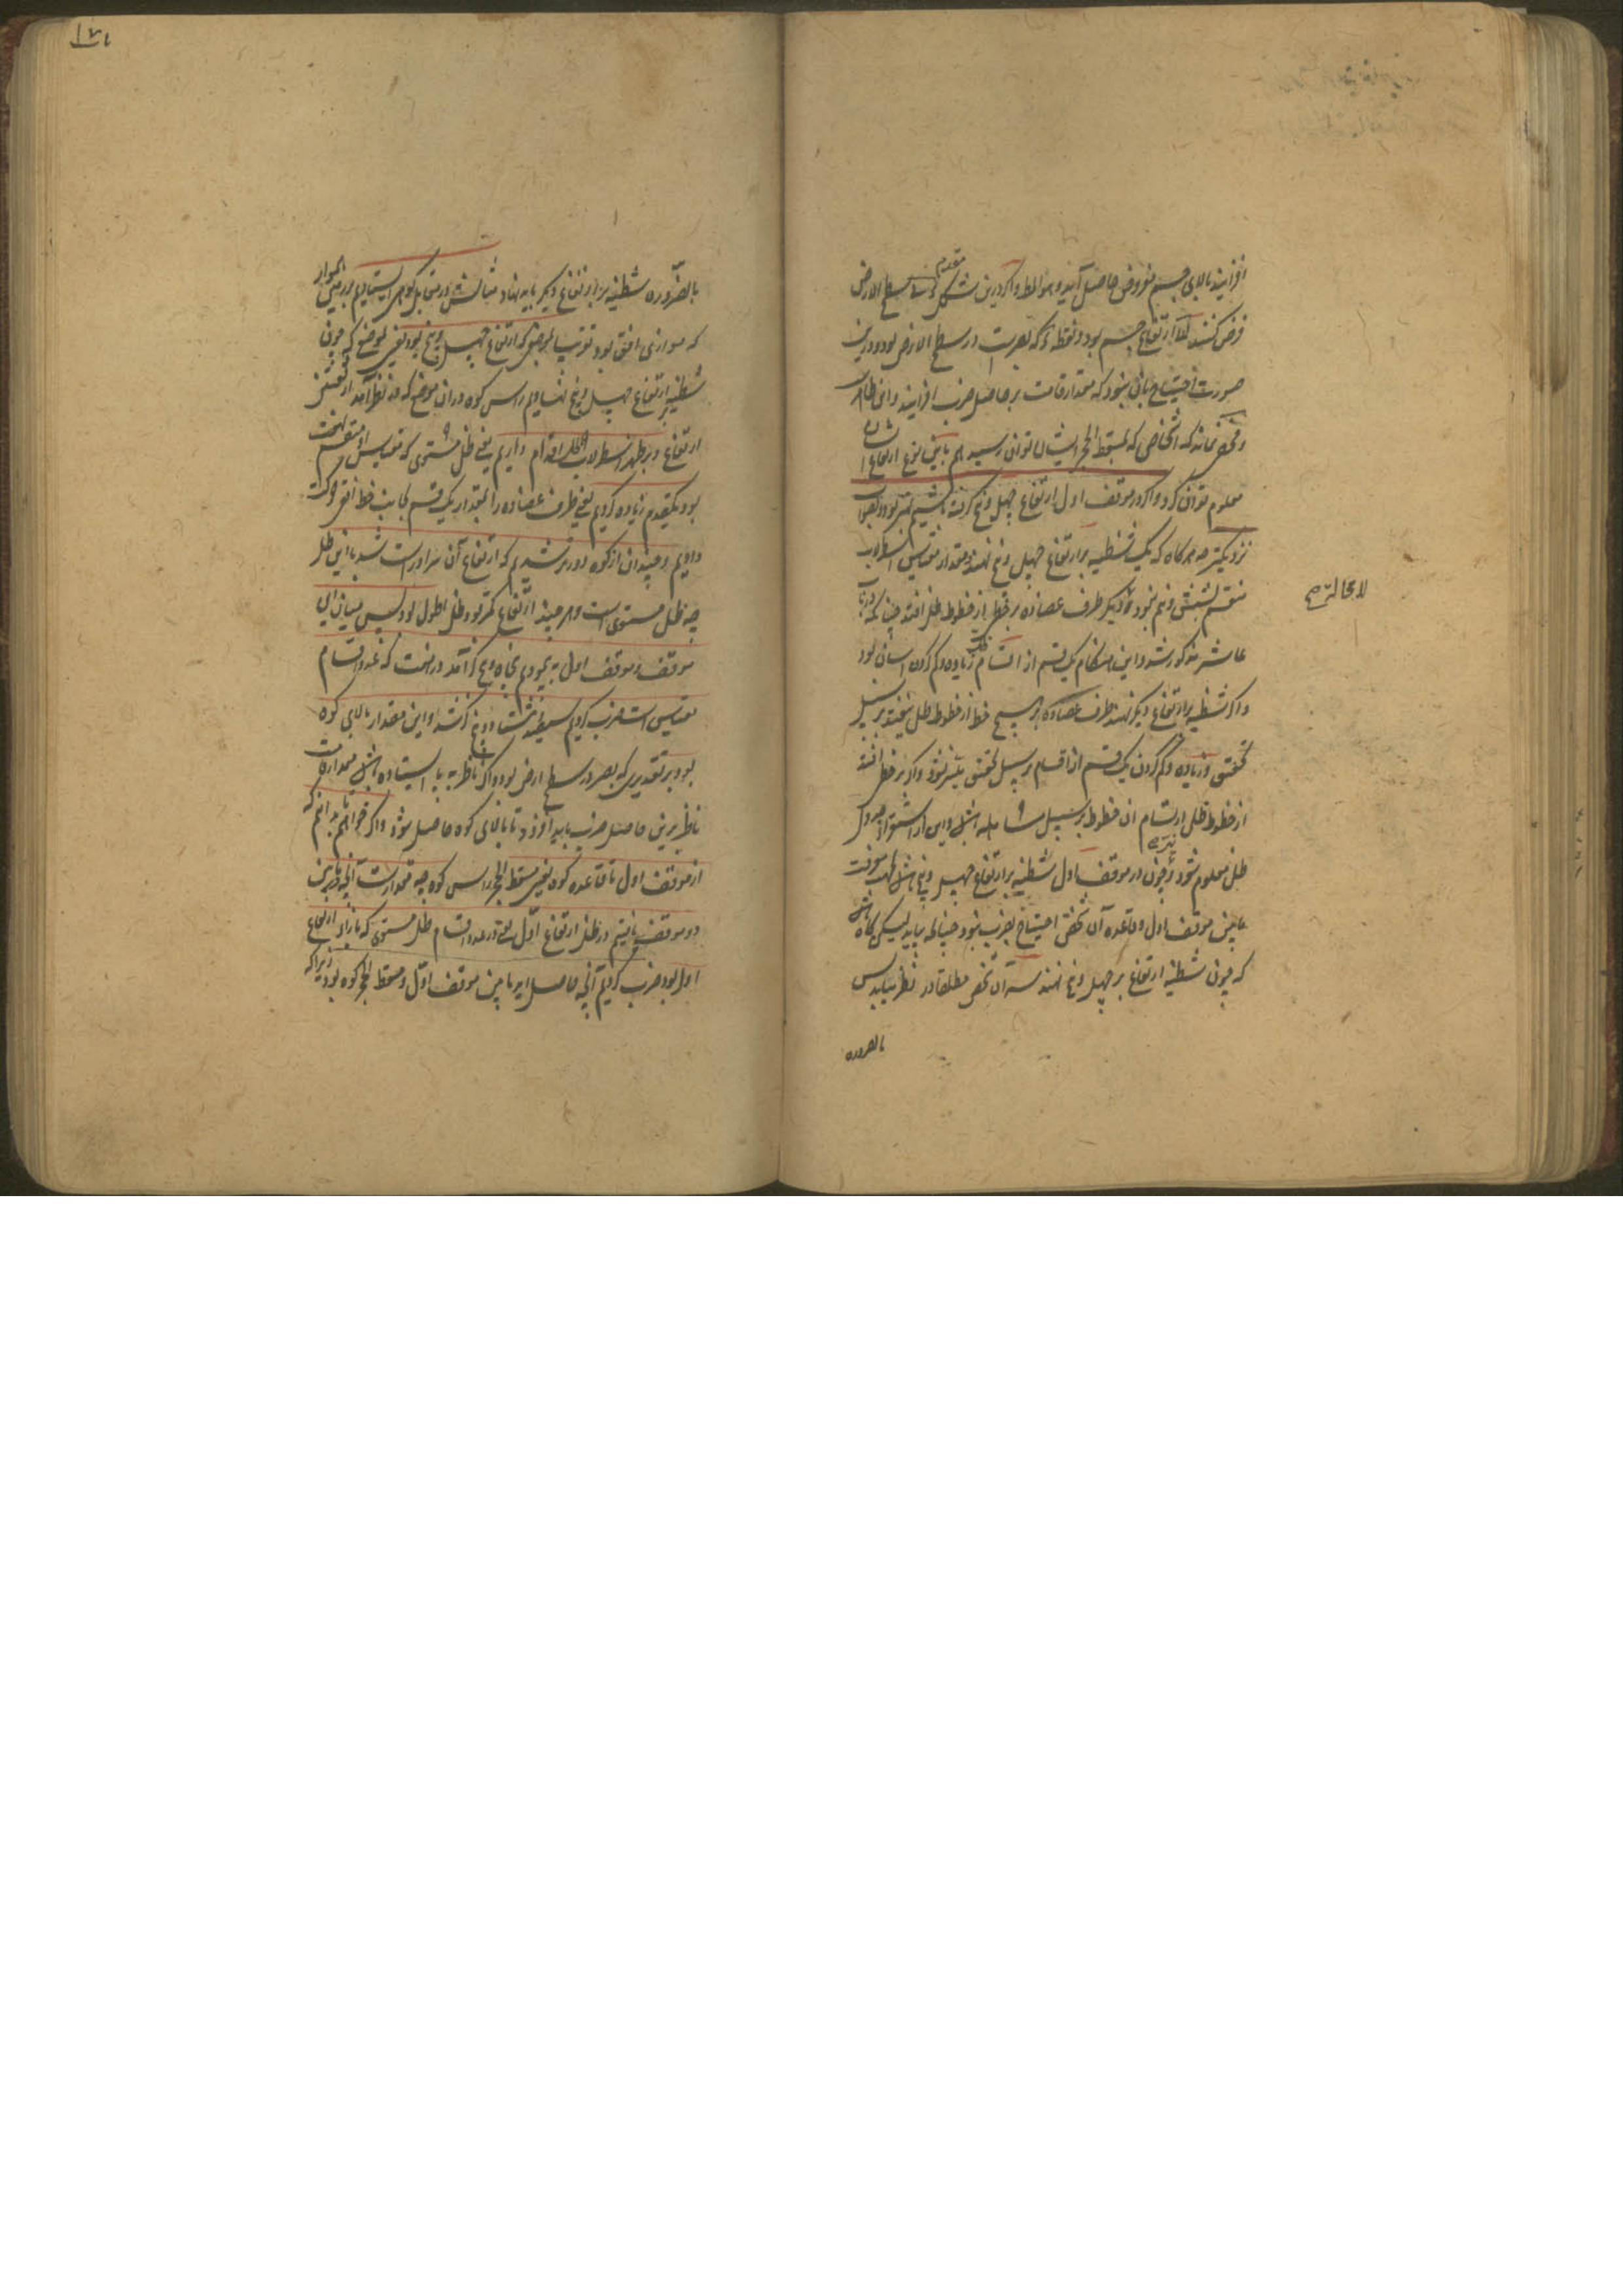 افزایند بالای جسم مفروض حاصل آید و هو المط و اگر درین شکل مقدم سطح الارض
فرض کنند ارتفاع جسم بود و نقطه که بصر است در سطح الارض بود و درین
صورت احتیاج بآن نبود که مقدار قامت بر حاصل ضرب افزایند و این ظاهر
و مخفی نماند که اشخاصی که بمسقط الحجر ایشان توان رسید هم باین نوع ارتفاع ایشان
معلوم توان کرد و اگر در موقف اول ارتفاع چهل و پنج گرفته باشیم بهتر بود و بصواب
نزدیکتر چه هرگاه که یک شظیه بر ارتفاع چهل و پنج نهند و مقدار مقیاس اسطرلاب
منقسم بشش و نیم نبود دیگر طرف عضاده بر خطی از خطوط ظل افتد چنانکه در باب
عاشر مذکور شد و این هنگام یک قسم از اقسام ظل زیاده و کم کردن آسان بود
و اگر شظیه بر ارتفاع دیگر نهند طرف عضاده بر هیچ خط از خطوط ظل نیفتد بر سبیل
تحقیق و زیاده و کم کردن یک قسم از اقسام بر سبیل تحقیق میسر نشود و اگر بر خطی افتد
از خطوط ظل ارتسام آن خطوط بر سبیل مساهله باشد و این از استقراء جدول
ظل معلوم شود و چون در موقف اول شظیه بر ارتفاع چهل و پنج باشد بجهت معرفت
مابین موقف اول و قاعده آن شخص احتیاج بضرب نبود چنانکه بیاید لیکن گاه باشد
که چون شظیه ارتفاع بر چهل و پنج نهند سر آن شخص مطلقا در نظر نیاید پس
بالضروره
لا محالة صح
بالضروره شظیه بر ارتفاع دیگر باید نهاد مثالش در مقابل کوهی ایستادیم در زمینی هموار
که موازی افق بود قریب بموضعی که ارتفاع چهل و پنج بود یعنی بموضعی که چون
شظیه بر ارتفاع چهل و پنج نهادیم راس کوه در آن موضع که در نظر آمد از ثقبتین
ارتفاع و بر ظهر اسطرلاب ظل اقدام داریم یعنی ظل مستوی که مقیاس او منقسم بهفت
بود یکقدم زیاده کردیم یعنی طرف عضاده را بمقدار یک قسم بجانب خط افق حرکت
دادیم و چندان از کوه دورتر شدیم که ارتفاع آن سر او راست شد با این ظل
چه ظل مستوی است و هر چند ارتفاع کمتر بود ظل اطول بود پس میان این
موقف و موقف اول به پیمودیم پنجاه و پنج گز آمد در هفت که عدد اقسام
مقیاس است ضرب کردیم سیصد و هشتاد و پنج گز شد و این مقدار بالای کوه
بود بر تقدیری که بصر در سطح ارض بود و اگر ناظر به پا ایستاده باشد مقدار قامت
ناظر برین حاصل ضرب باید افزود تا بالای کوه حاصل شود و اگر خواهیم تا بدانیم که
از موقف اول تا قاعده کوه یعنی مسقط الحجر راس کوه چه مقدار است آنچه مابین
دو موقف یافتیم در ظل ارتفاع اول یعنی در عدد اقسام ظل مستوی که بازاء ارتفاع
اول بود ضرب کردیم آنچه حاصل آید مابین موقف اول و مسقط الحجر کوه بود زیرا که